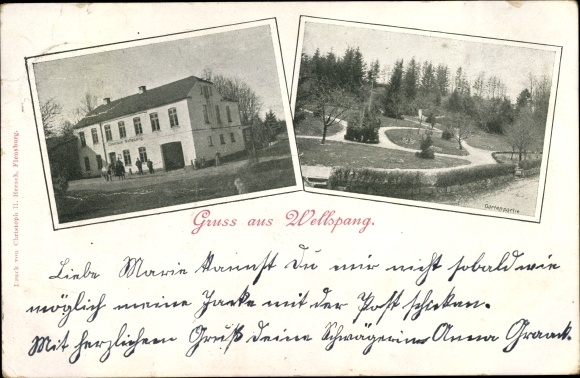 Gartenpartie
Gruss aus Wellspang.
Druck von Christoph D. Heesch, Flensburg.
Liebe Marie kannst Du mir nicht sobald wie
möglich meine Jacke mit der Post schicken.
Mit herzlichem Gruß deine Schwägerin Anna Graack.